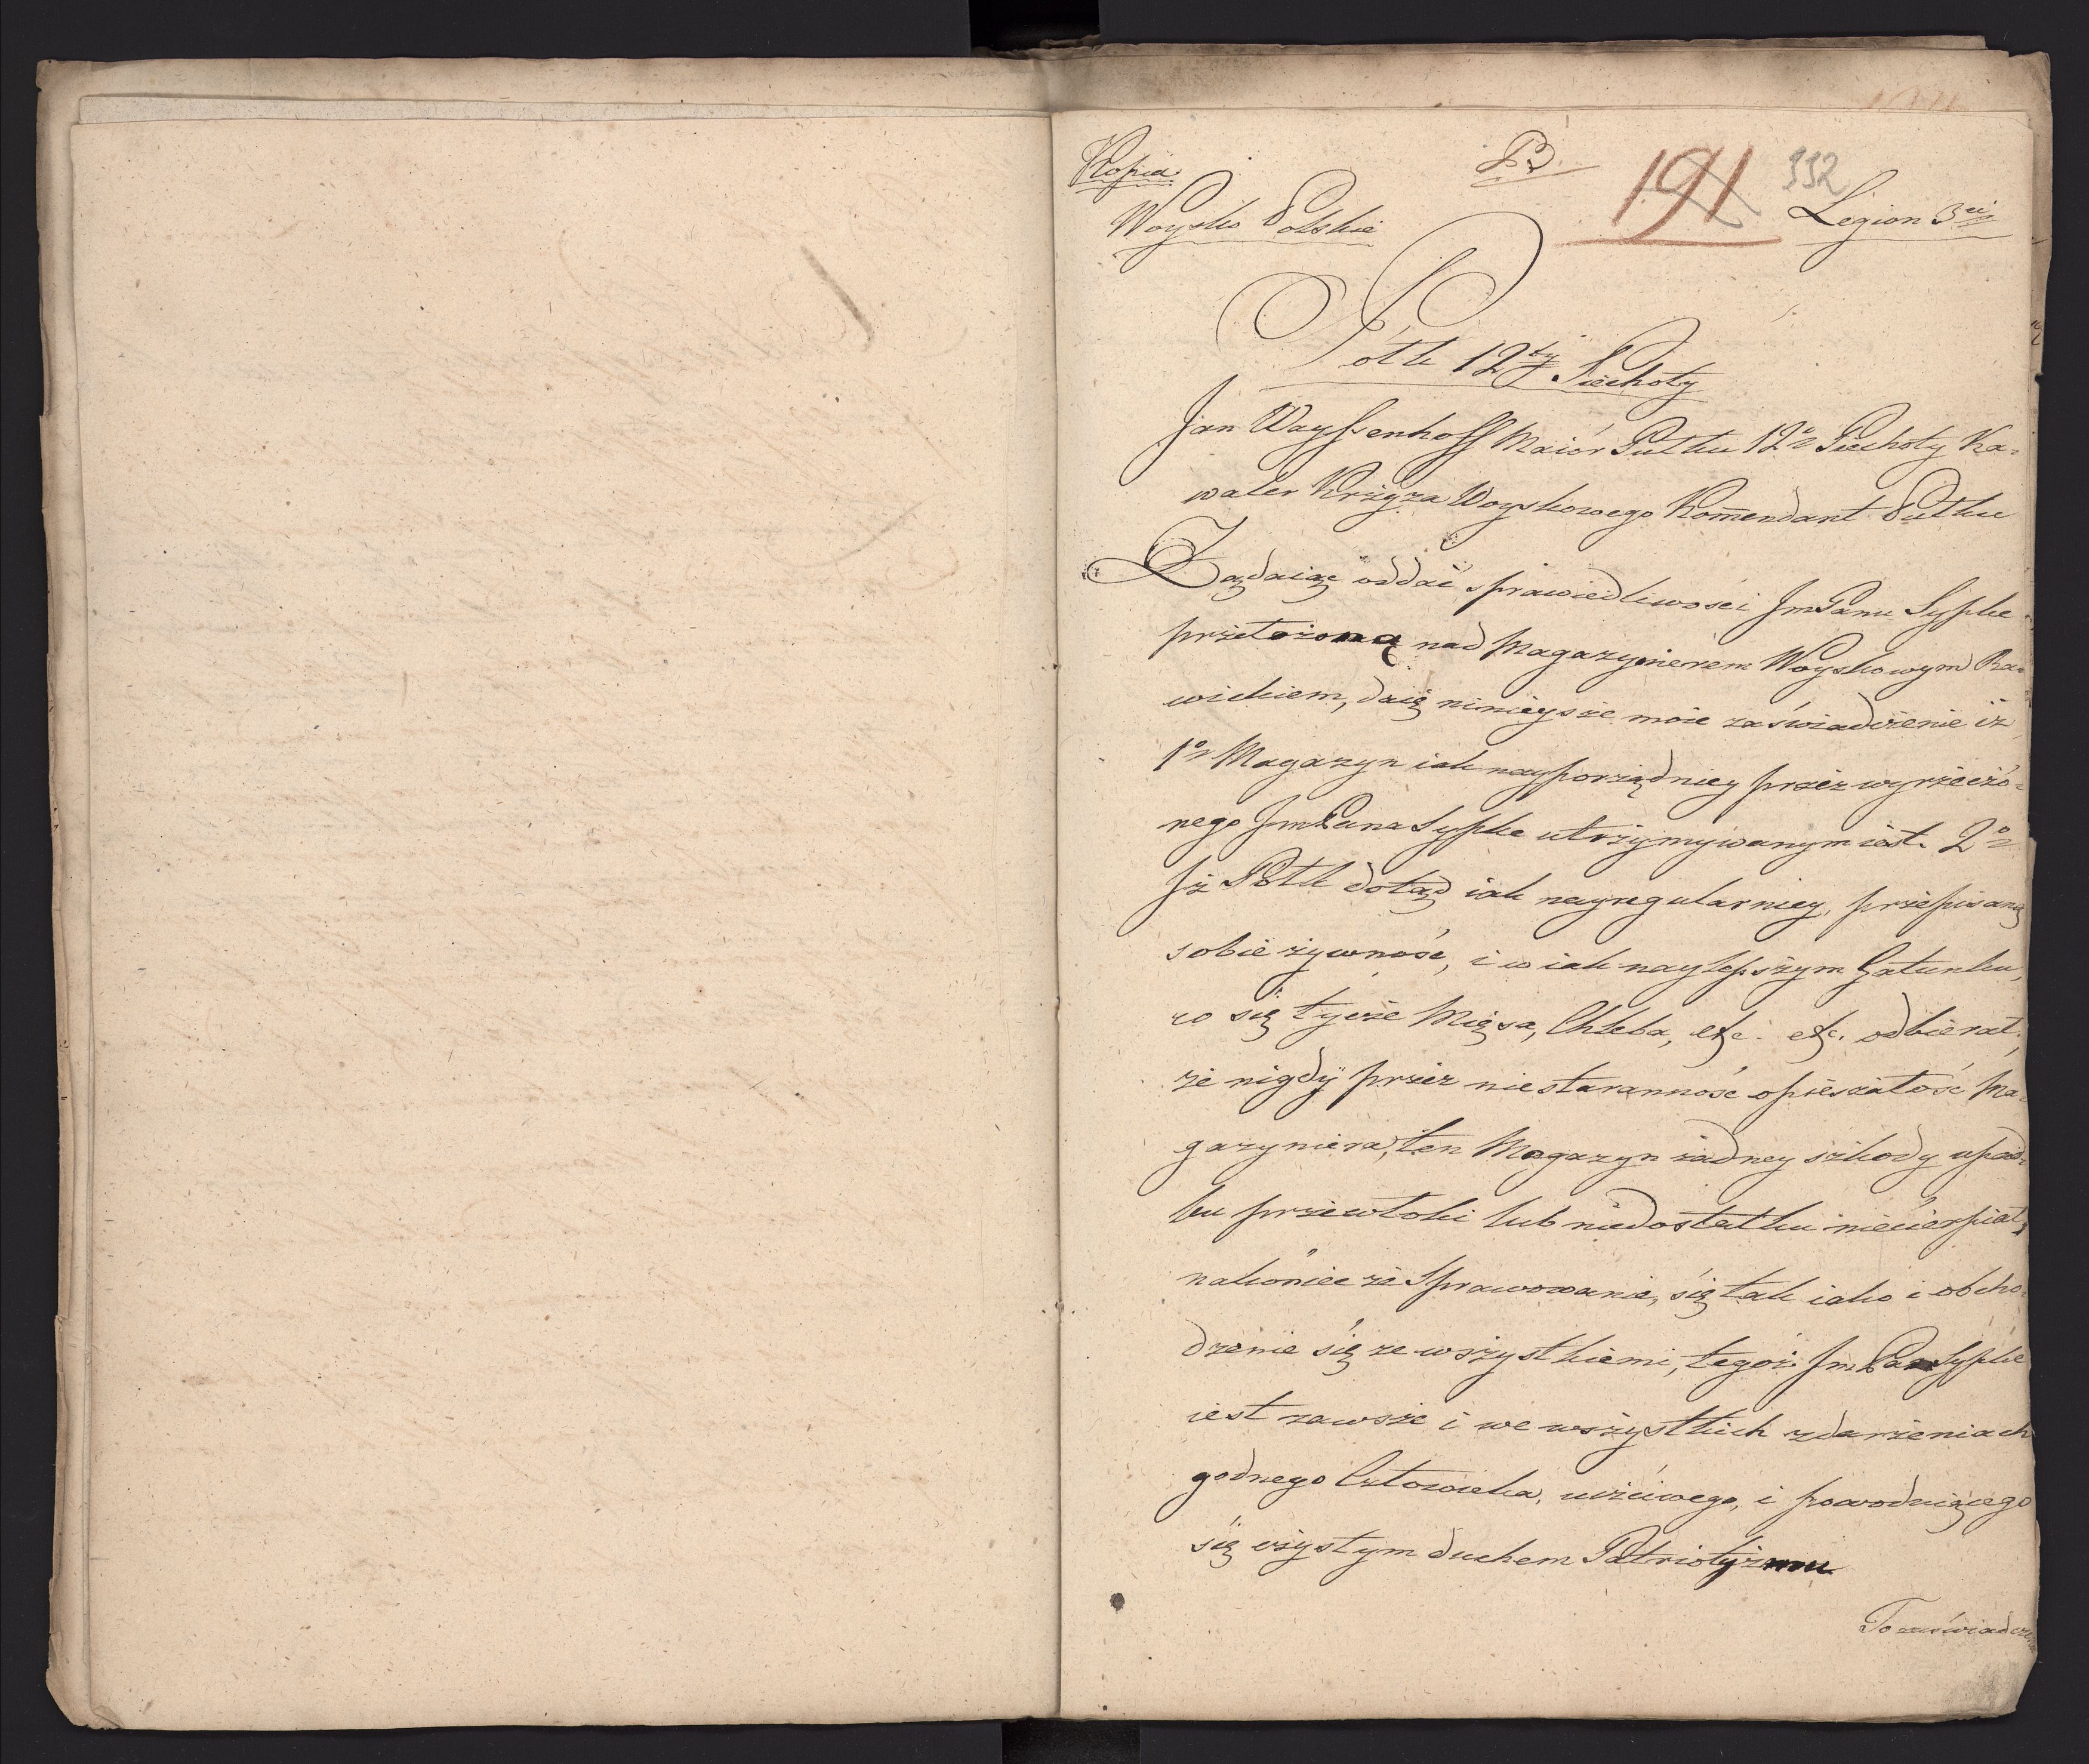 Kopia
B.
191 332
Woysko Polskie
Legion 3ci
Półk 12ty Piechoty
Jan Wayssenhoff Maiór Pułku 12o Piechoty Ka-
waler Krzyża Woyskowego Kom̄endant Pułku
Żądaiąc oddać sprawiedliwości JmPanu Sypke
przełożoną nad Magazynierem Woyskowym Ra-
wickiem, daię ninieysze moie zaświadczenie iż
1o Magazyn iak nayporządniey przez wyrzeczo-
nego JmPana Sypke utrzymywanym iest. 2o
Iż Półk dotąd iak nayregularniey, przepisaną
sobie żywność, i w iak naylepszym Gatunku,
co się tycze Mięsa, Chleba, etc. etc. odbierał;
że nigdy przez niestaranność opieszałość Ma-
gazyniera, ten Magazyn żadney szkody upad-
ku przewłoki lub niedostatku niecierpiał,
nakoniec że Sprawowanie, się tak iako i obcho-
dzenie się ze wszystkiemi, tegoż JmPan Sypke
iest zawsze i we wszystkich zdarzeniach
godnego Człowieka, uczciwego, i powoduiącego
się czystym duchem Patriotyzmu
To zaświadcze